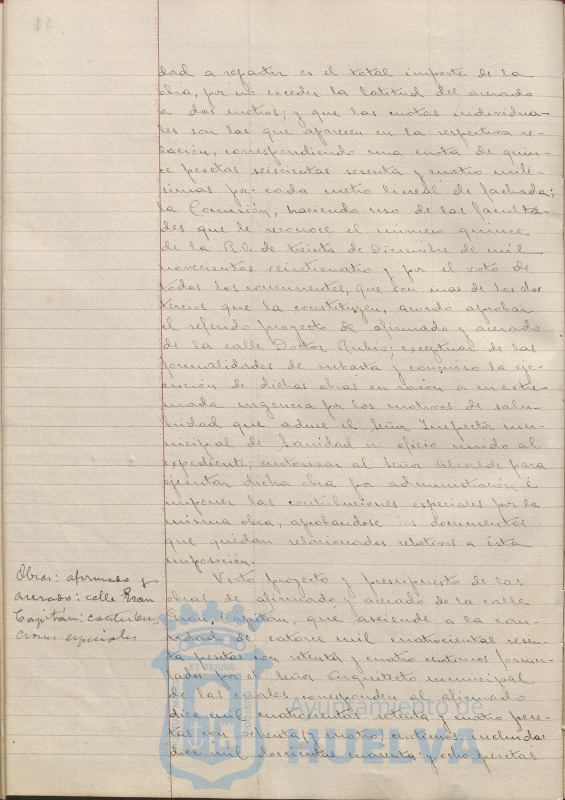 dad a repartir es el total importe de la
obra, por no exceder la latitud del acerado
a dos metros; y que las cuotas individua-
les son las que aparecen en la respectiva re-
lación, correspondiendo una cuota de quin-
ce pesetas seiscientas sesenta y cuatro milé-
simas por cada metro lineal de fachada;
la Comisión, haciendo uso de las faculta-
des que le reconoce el número quince
de la R. O. de treinta de Diciembre de mil
novecientos veinticuatro y por el voto de
todos los concurrentes, que son mas de los dos
tercios que la constituyen, acordó aprobar
el referido proyecto de afirmado y acerado
de la calle Doctor Rubio; exceptuar de las
formalidades de subasta y concurso la eje-
cución de dichas obras en razón a su extre-
mada urgencia por los motivos de salu-
bridad que aduce el Señor Inspector mu-
nicipal de Sanidad en oficio unido al
expediente; autorizar al Señor Alcalde para
ejecutar dicha obra por administración é
imponer las contribuciones especiales por la
misma obra, aprobandose los documentos
que quedan relacionados relativos a ésta
imposición.
Obras: afirmado y
acerado: calle Gran
Capitán: contribu-
ciones especiales
Visto proyecto y presupuesto de las
obras de afirmado y acerado de la calle
Gran Capitán, que asciende a la can-
tidad de catorce mil cuatrocientas sesen-
ta pesetas con setenta y cuatro centimos formu-
lados por el Señor Arquitecto municipal
de las cuales corresponden al afirmado
diez mil cuatrocientas setenta y cuatro pese-
tas con ochenta y cuatro centimos incluidas
diez mil doscientas cuarenta y ocho pesetas
Ayuntamiento de
HUELVA